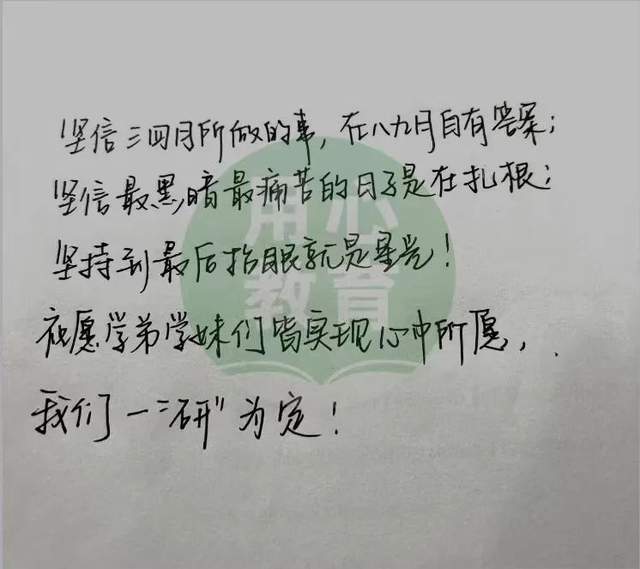 坚信三四月所做的事，在八九月自有答案；
坚信最黑暗最痛苦的日子是在扎根；
坚持到最后抬眼就是星光！
祝愿学弟学妹们皆实现心中所愿，
我们一“研”为定！
用心
教育